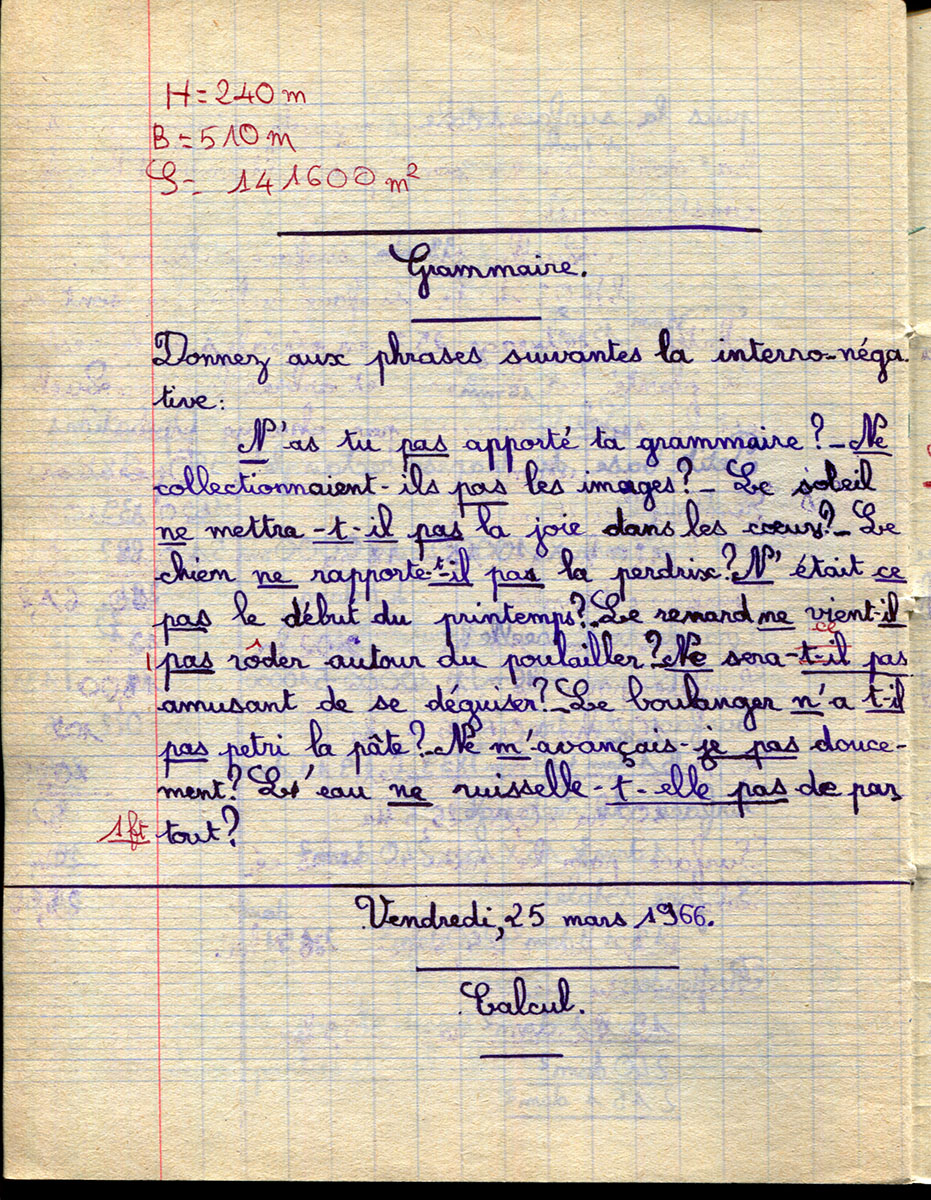 H = 240 m
B = 510 m
S = 141600 m²
Grammaire.
Donnez aux phrases suivantes la interro-néga
tive:
N'as tu pas apporté ta grammaire ? - Ne
collectionnaient-ils pas les images? - Le soleil
ne mettra-t-il pas la joie dans les cœurs? - Le
chien ne rapporte-t-il pas la perdrix? N'était ce
pas le début du printemps? Le renard ne vient-il
ce
1 pas rôder autour du poulailler? Ne sera-t-il pas
amusant de se déguiser? - Le boulanger n'a t-il
pas petri la pâte? - Ne m'avançais-je pas douce-
ment? L'eau ne ruisselle-t-elle pas de par
1 ft tout?
Vendredi, 25 mars 1966.
Calcul.